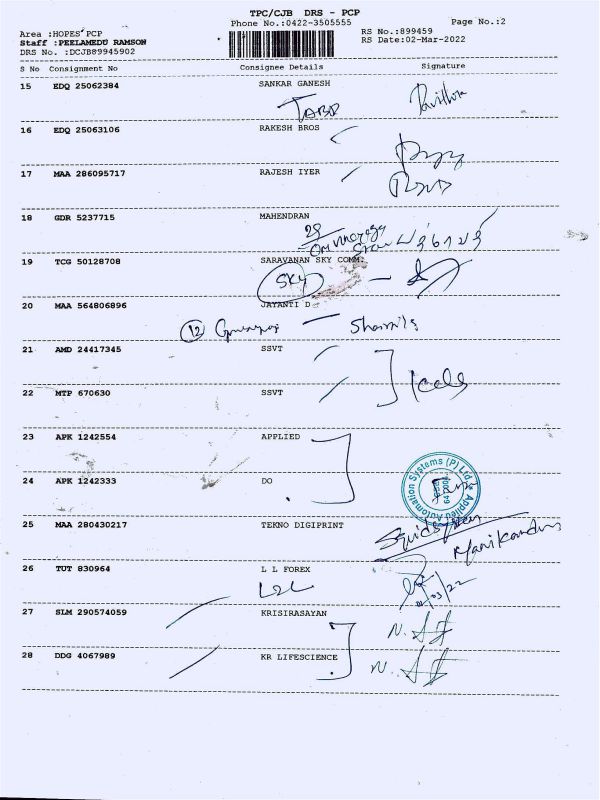 TPC/CJB DRS - PCP
Phone No.:0422-3505555
Page No.:2
Area :HOPES PCP
Staff :PEELAMEDU RAMSON
DRS No. :DCJB89945902
RS No.:899459
RS Date:02-Mar-2022
S No Consignment No Consignee Details Signature
15 EDQ 25062384 SANKAR GANESH
16 EDQ 25063106 RAKESH BROS
17 MAA 286095717 RAJESH IYER
18 GDR 5237715 MAHENDRAN
19 TCG 50128708 SARAVANAN SKY COMM.
SKY
20 MAA 564806896 JAYANTI D
12
21 AMD 24417345 SSVT
22 MTP 670630 SSVT
23 APK 1242554 APPLIED
24 APK 1242333 DO
Applied Automation Systems (P) Ltd.
25 MAA 280430217 TEKNO DIGIPRINT
Manikandan
26 TUT 830964 L L FOREX
27 SLM 290574059 KRISIRASAYAN
28 DDG 4067989 KR LIFESCIENCE